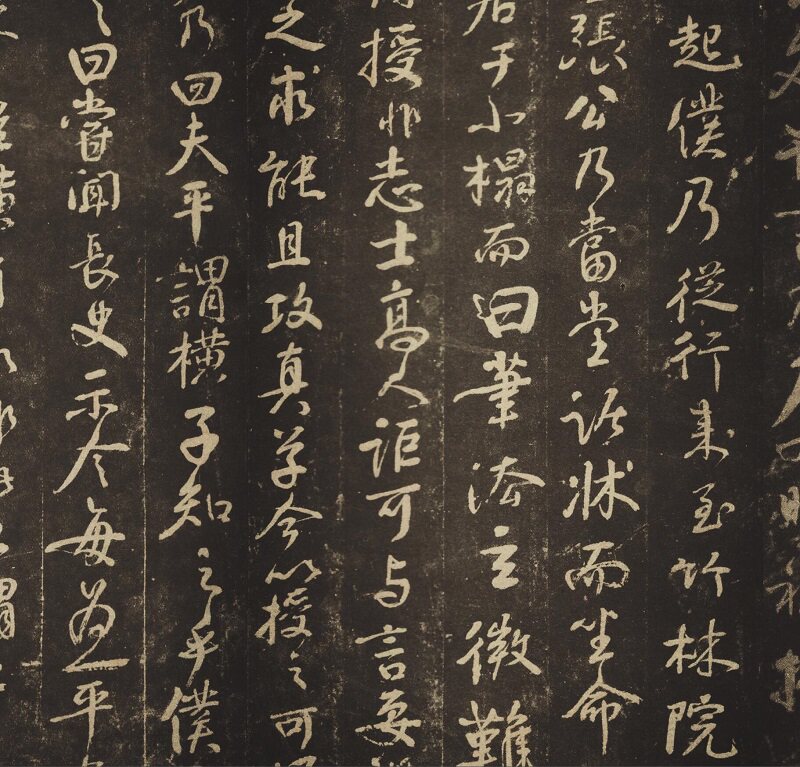 起僕乃從行來至竹林院
張公乃當堂踞牀而坐命
居于小榻而曰筆法玄微難
授非志士高人詎可与言要
之求能且攻真草今以授之可
乃曰夫平謂橫子知之乎僕
之曰嘗聞長史示令每為一平